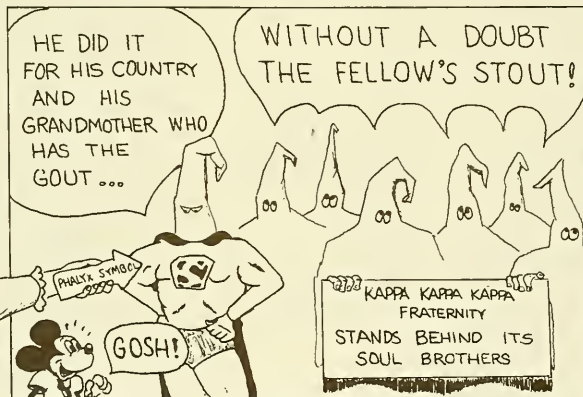 HE DID IT
FOR HIS COUNTRY
AND HIS
GRANDMOTHER WHO
HAS THE
GOUT ...
WITHOUT A DOUBT
THE FELLOW'S STOUT!
PHALYX SYMBOL
S
GOSH!
KAPPA KAPPA KAPPA
FRATERNITY
STANDS BEHIND ITS
SOUL BROTHERS